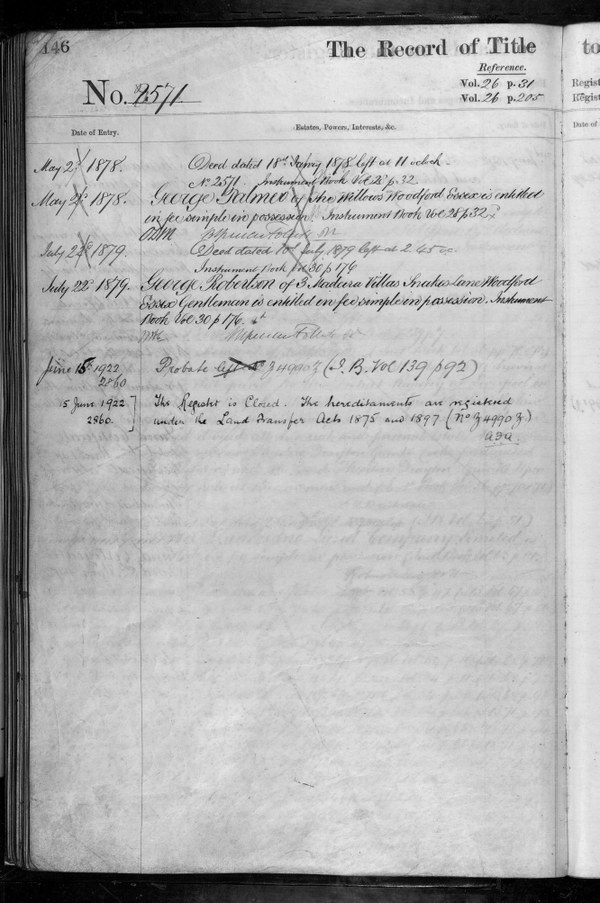 146
The Record of Title
to
Reference.
No. 2571
Vol. 26 p. 31
Vol. 26 p. 205
Regist
Regist
Date of Entry.
Estates, Powers, Interests, &c.
Date of
May 2d 1878. Deed dated 18th 1878 left at 11 oclock.
No 2571 Instrument Book Vol 28 p. 32
May 2d 1878. George Palmer of The Willows Woodford Essex is entitled
in fee simple in possession. Instrument Book Vol 28 p 32
July 22d 1879. Deed dated July 1879 left at 2.45
Instrument Book Vol 30 p 176
July 22d 1879. George Robertson of 3 Madeira Villas Snakes Lane Woodford
Essex Gentleman is entitled in fee simple in possession. Instrument
Book Vol 30 p 176.
June 15 1922 Probate left 34990z (I.B. Vol 139 p 92)
2860
15 June 1922 The Register is Closed. The hereditaments are registered
2860. under the Land Transfer Acts 1875 and 1897 (No 34990z)